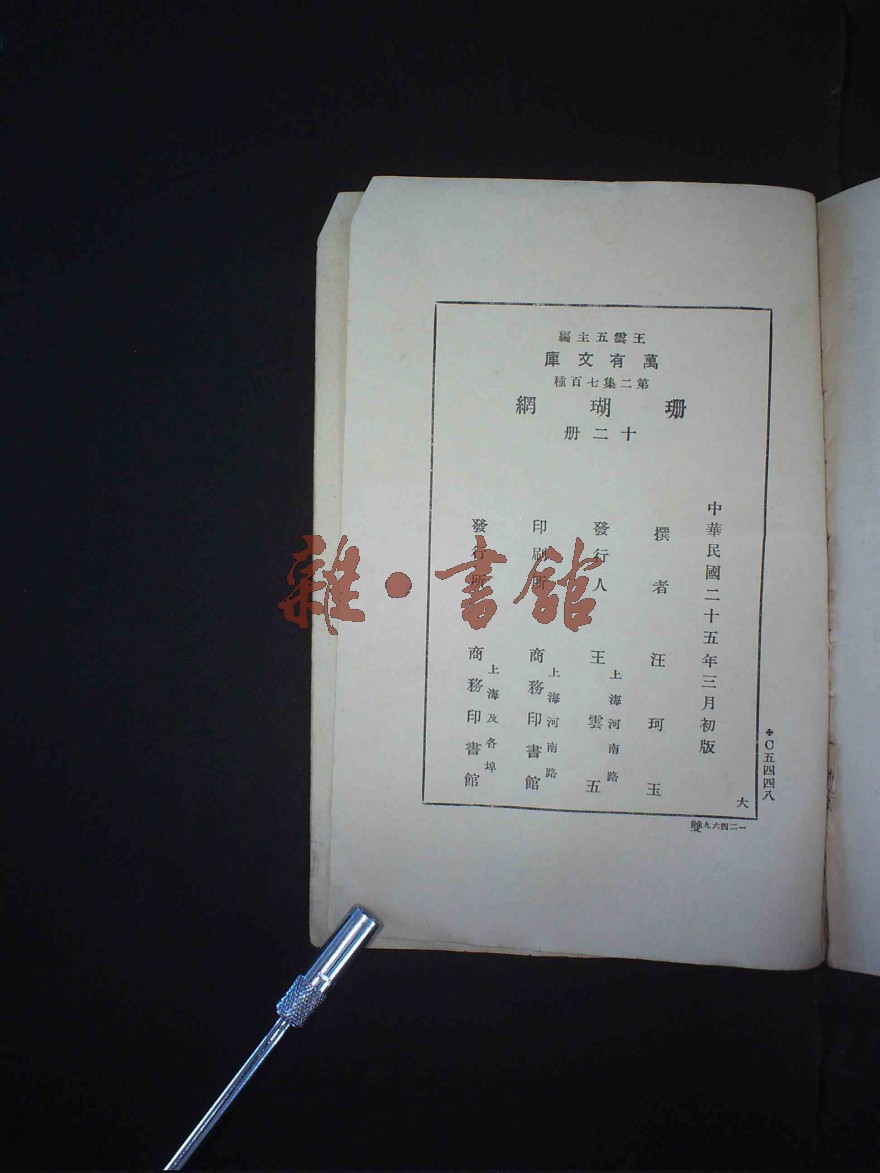 王雲五主編
萬有文庫
第二集七百種
珊瑚網
十二册
中華民國二十五年三月初版
撰者 汪珂玉
發行人 王雲五
上海河南路
印刷所 商務印書館
上海河南路
發行所 商務印書館
上海及各埠
＊C五四四八
大
一二四六九雙
雜·書館